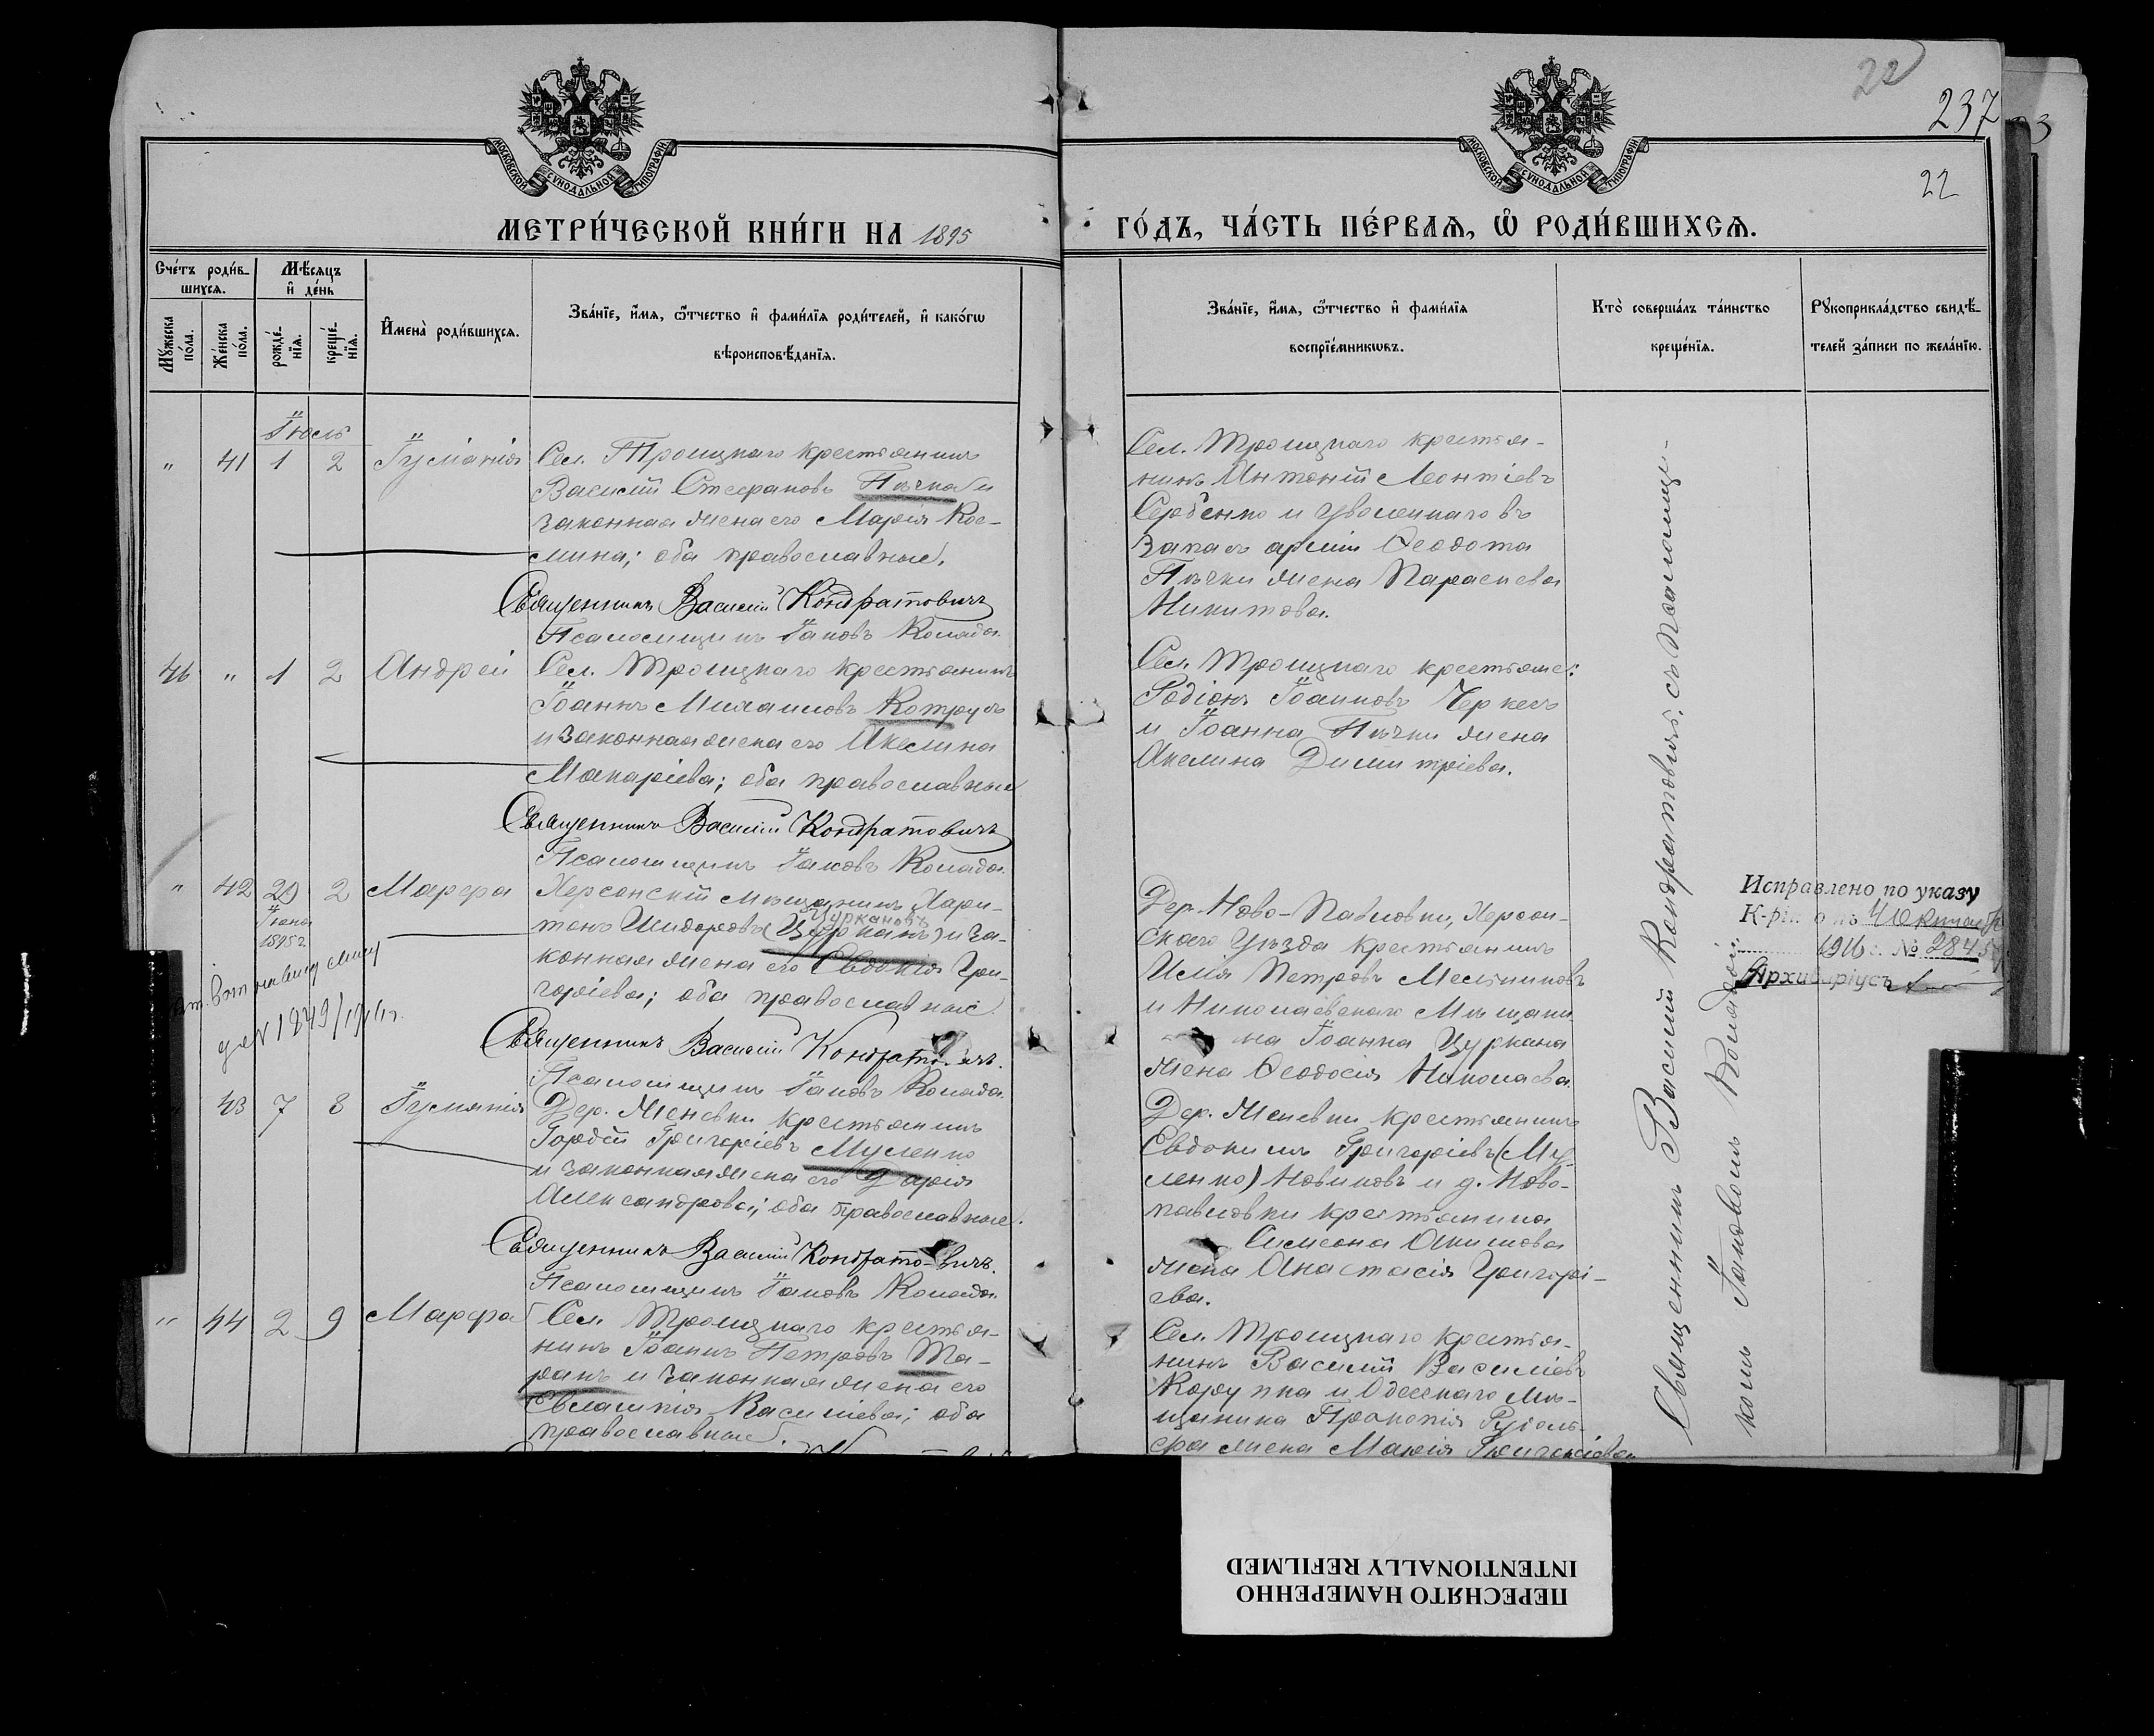 22
237
22
МОСКОВСКОЙ СѴНОДАЛЬНОЙ ТИПОГРАФІИ
МОСКОВСКОЙ СѴНОДАЛЬНОЙ ТИПОГРАФІИ
МЕТРИ́ЧЕСКОЙ КНИ́ГИ НА 1895
ГО́ДЪ, ЧА́СТЬ ПЕ́РВАЯ, Ѽ РОДИ́ВШИХСѦ.
Сче́тъ роди́в-
шихсѧ.
Мѣ́сяцъ
и҆ де́нь
Мꙋ́жеска
по́ла.
Же́нска
по́ла.
рожде́-
нїѧ.
креще́-
нїѧ.
И҆мена̀ роди́вшихсѧ.
Зва́нїе, и҆́мѧ, ѻ҆́тчество и҆ фами́лїѧ роди́телей, и҆ како́гѡ
вѣроисповѣ́данїѧ.
Зва́нїе, и҆́мѧ, ѻ҆́тчество и҆ фами́лїѧ
воспрїе́мникѡвъ.
Кто̀ соверша́лъ та́инство
креще́нїѧ.
Рꙋкоприкла́дство свидѣ́-
телей за́писи по жела́нїю.
Іюль
" 41 1 2 Іуліанія
Сел. Троицкаго крестьянинъ
Василій Стефановъ Пѣчка и
законная жена его Марія Кос-
мина; оба православные.
Священникъ Василій Кондратовичъ
Псаломщикъ Іаковъ Колада.
Сел. Троицкаго крестья-
нинъ Антоній Леонтіевъ
Сербенко и уволеннаго въ
запасъ арміи Ѳеодота
Пѣчки жена Параскева
Никитова.
46 " 1 2 Андрей
Сел. Троицкаго крестьянинъ
Іоаннъ Михаиловъ Котруъ
и законная жена его Акелина
Макаріева; оба православные
Священникъ Василій Кондратовичъ
Псаломщикъ Іаковъ Колада.
Сел. Троицкаго крестьяне:
Родіонъ Іоанновъ Черкесъ
и Іоанна Пѣчки жена
Акелина Димитріева.
" 42 29 2 Марфа
Іюня
1895 г.
Херсонскій мѣщанинъ Хари-
Цуркановъ
тонъ Исидоровъ (Цурканъ) и за-
конная жена его Евдокія Гри-
горіева; оба православные.
Священникъ Василій Кондратовичъ.
Псаломщикъ Іаковъ Колада.
№ 1849/1916 г.
Дер. Ново-Павловки, Херсон-
скаго уѣзда крестьянинъ
Илія Петровъ Мельниковъ
и Николаевскаго мѣщани-
на Іоанна Цуркана
жена Ѳеодосія Николаева.
Исправлено по указу
К-ріи отъ 4 Октября
1916 г. № 2845
Архиваріусъ
43 7 8 Іуліанія
Дер. Женевки крестьянинъ
Гордій Григоріевъ Мусленко
и законная жена его Дарія
Александрова; оба православные.
Священникъ Василій Кондратовичъ.
Псаломщикъ Іаковъ Колада.
Дер. Женевки крестьянинъ
Евдокимъ Григоріевъ (Му-
ленко) Новиковъ и д. Ново-
павловки крестьянина
Симеона Акимова
жена Анастасія Григорі-
ева.
" 44 2 9 Марфа
Сел. Троицкаго крестья-
нинъ Іоаннъ Петровъ Та-
ранъ и законная жена его
Евлампія Василіева; оба
православные.
Сел. Троицкаго крестья-
нинъ Василій Василіевъ
Корупка и Одесскаго мѣ-
щанина Прокопія
жена Марія Григоріева
Священникъ Василій Кондратовичъ, съ псаломщи-
комъ Іаковомъ Коладой.
ПЕРЕСНЯТО НАМЕРЕННО
INTENTIONALLY REFILMED